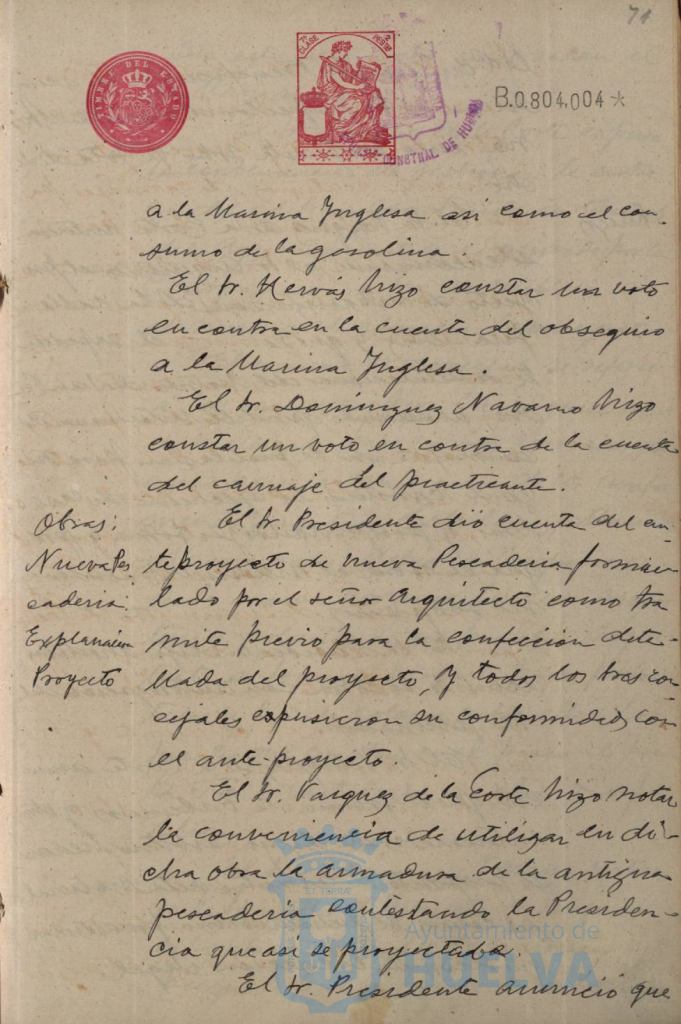 71
TIMBRE DEL ESTADO
7ª CLASE
2 PESETAS
B.0.804.004*
CONSTNAL DE HUELVA
a la Marina Ynglesa así como el con-
sumo de la gasolina.
El Sr. Hervás hizo constar un voto
en contra en la cuenta del obsequio
a la Marina Ynglesa.
El Sr. Dominguez Navarro hizo
constar un voto en contra de la cuenta
del carruaje del practicante.
Obras:
Nueva Pes
caderia.
Explanación
Proyecto
El Sr. Presidente dió cuenta del an-
teproyecto de nueva Pescaderia formu-
lado por el señor Arquitecto como tra
mite previo para la confección deta-
llada del proyecto, y todos los tres con-
cejales expusieron su conformidad con
el ante-proyecto.
El Sr. Vazquez de la Corte hizo notar
la conveniencia de utilizar en di-
cha obra la armadura de la antigua
pescaderia contestando la Presiden-
cia que asi se proyectaba.
El Sr. Presidente anunció que
Ayuntamiento de
HUELVA